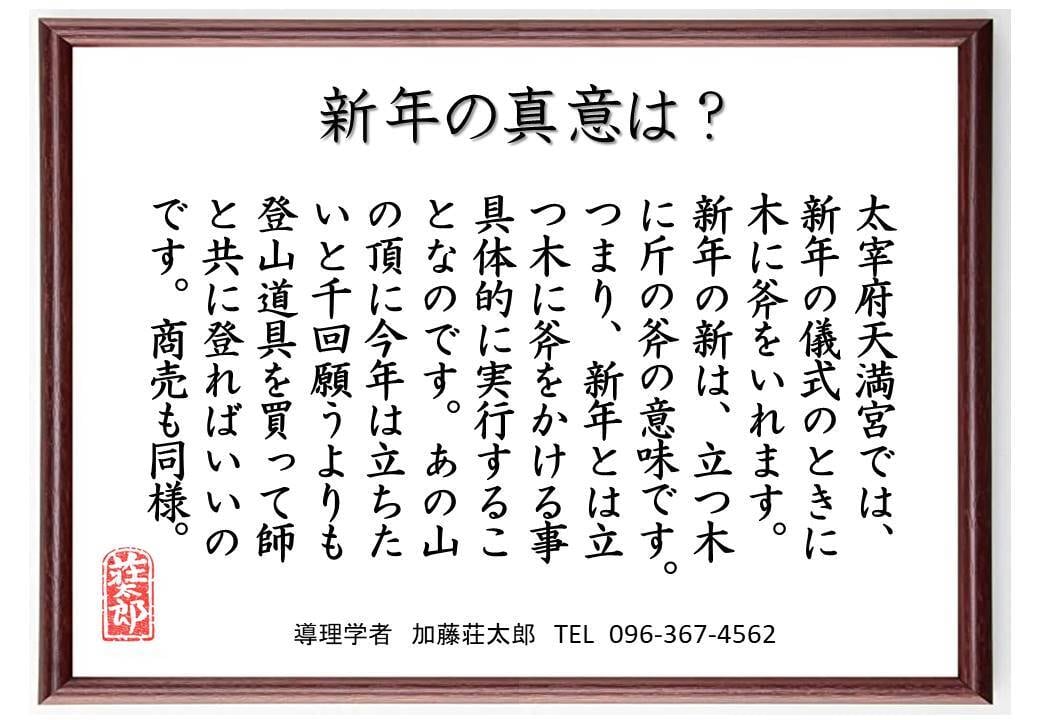 新年の真意は？
太宰府天満宮では、
新年の儀式のときに
木に斧をいれます。
新年の新は、立つ木
に斤の斧の意味です。
つまり、新年とは立
つ木に斧をかける事
具体的に実行するこ
となのです。あの山
の頂に今年は立ちた
いと千回願うよりも
登山道具を買って師
と共に登ればいいの
です。商売も同様。
荘太郎
導理学者 加藤荘太郎 TEL 096-367-4562